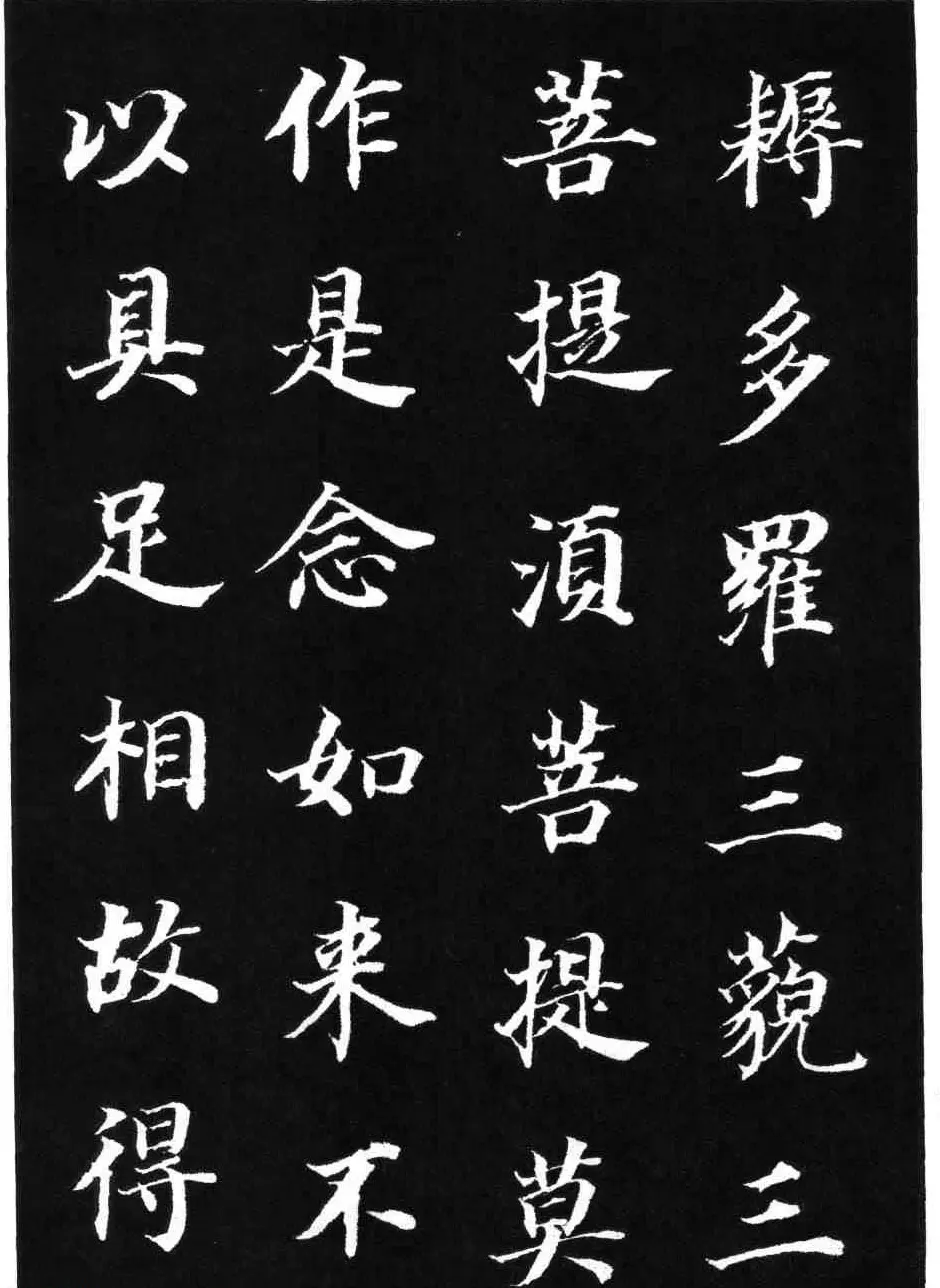 耨多羅三藐三
菩提須菩提莫
作是念如来不
以具足相故得